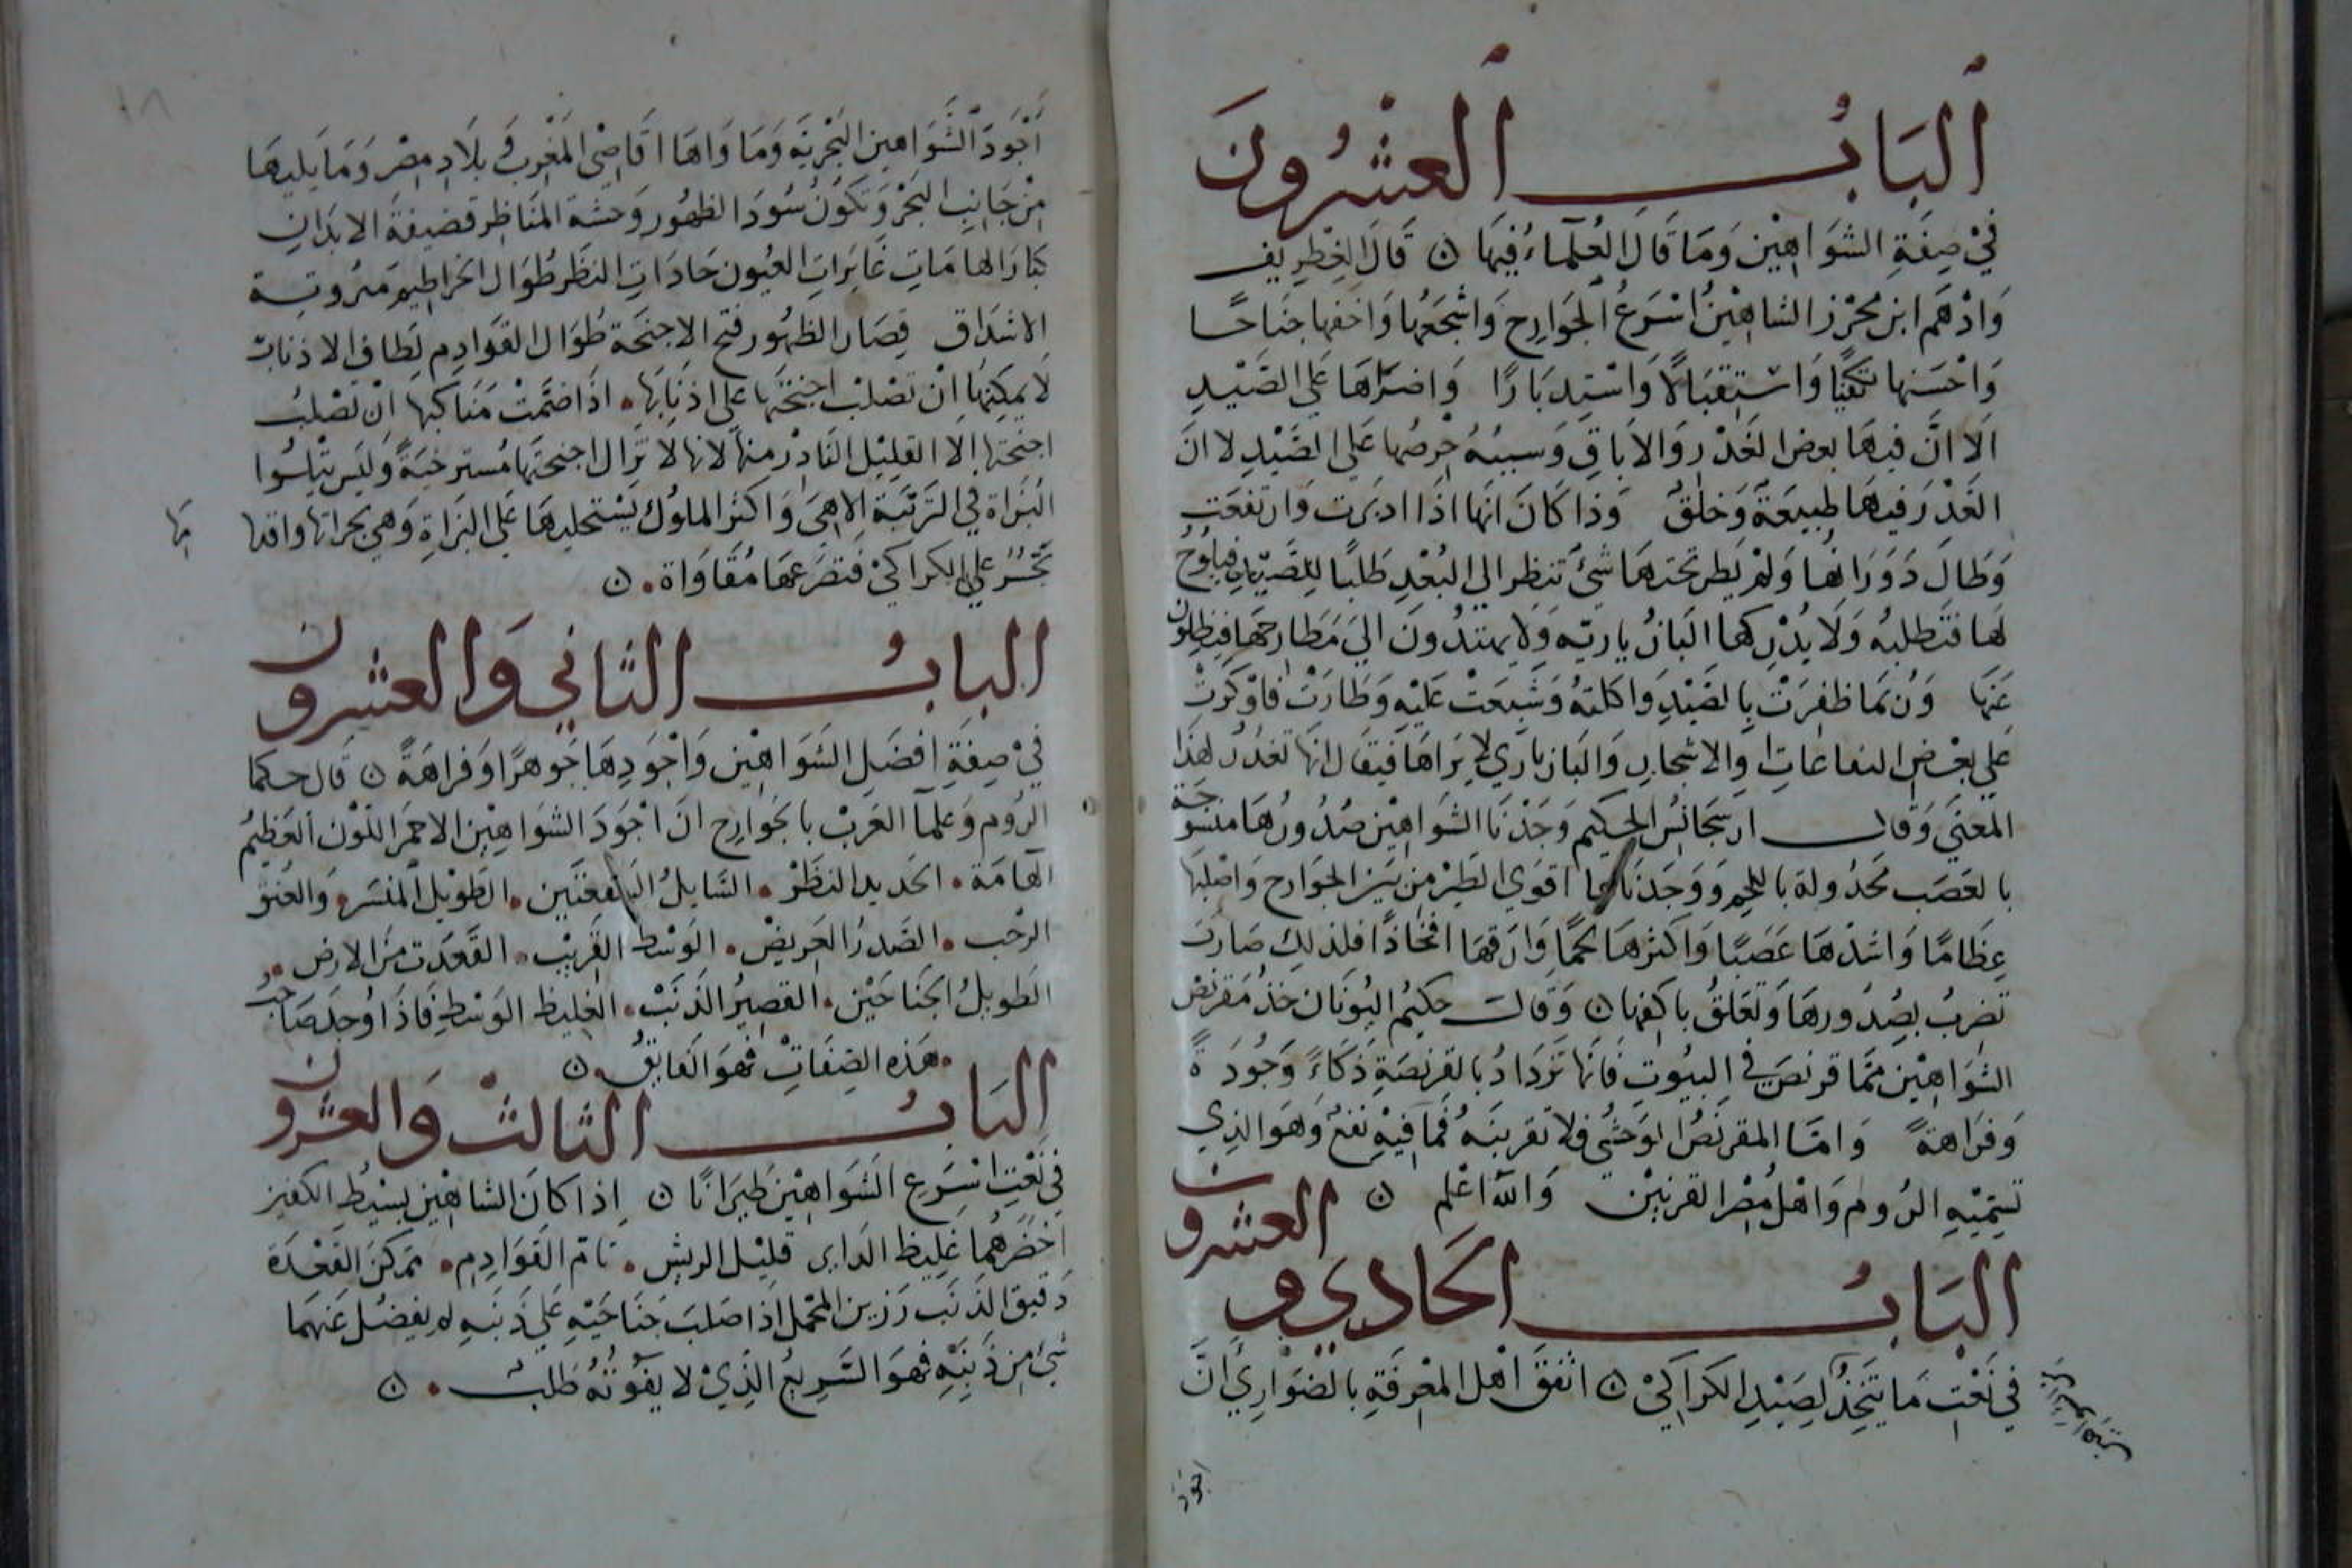 الباب العشرون
في صفة الشواهين وما قال العلماء فيها ۞ قال الغطريف
وادهم ابن محرز الشاهين اسرع الجوارح واشجعها واخفها جناحا
واحسنها تكفيا واستقبالا واستدبارا واضراها على الصيد
الا ان فيها بعض الغدر والاباق وسببه حرصها على الصيد لا ان
الغدر فيها طبيعة وخلق وذا كان انها اذا ادبرت وارتفعت
وطال دورانها ولم يطر تحتها شيء تنظر الى البعد طلبا للصيد فيلوح
لها فتطلبه ولا يدركها البازياريه ولا يهتدون الي مطارحها فيظلون
عنها وربما ظفرت بالصيد واكلته وشبعت عليه وطارت فاوكرت
علي بعض والاشجار والبازياري لا يراها فيقال انها تغدر لهذا
المعنى وقال ارسجانس الحكيم وجدنا الشواهين صدورها منسوجة
بالعصب مجدولة باللحم ووجدناها اقوي الطير من بين الجوارح واصلبها
عظاما واشدها عصبا واكثرها لحما وارقها افخاذا فلذلك صارت
تضرب بصدورها وتعلق باكفها ۞ وقالت حكيم اليونان خذ مقرنص
الشواهين مما قرنص في البيوت فانها تزداد بالقرنصة ذكاء وجودة
وفراهة واما المقرنص الوحشي فلا تقربنه فما فيه نفع وهو الذي
تسميه الروم واهل مصر القرنين والله اعلم ۞
الباب الحادي والعشرون
في نعت ما يتخذ لصيد الكراكي ۞ اتفق اهل المعرفة بالضواري ان
اجود
اجود الشواهين البحرية وما واها اقاصي المغرب في بلاد مصر وما يليها
من جانب البحر وتكون سود الظهور وحشة المناظر قضيفة الابدان
كبار الهامات غايرات العيون حادات النظر طوال الخراطيم مهروتة
الاشداق قصار الظهور فتح الاجنحة طوال القوادم لطاف الاذناب
لا يمكنها ان تصلب اجنحتها على اذنابها . اذا ضمت مناكبها ان تصلب
اجنحتها الا القليل النادر منها لانها لا تزال اجنحتها مسترخية وليس يتلوا
البزاة في الترتبة الا هي واكثر الملوك يستحليدها علي البزاة وهي بجراتها واقدا
مها
تجسر علي الكراكي فتصرعها مقاواة . ۞
الباب الثاني والعشرون
في صفة افضل الشواهين واجودها جوهرا وفراهة ۞ قال حكما
الروم وعلما العرب بالجوارح ان اجود الشواهين الاحمر اللون العظيم
الهامة . الحديد النظر . السايل السفعتين . الطويل المنسر والعنق
الرحب . الصدر العريض . الوسط القريب . القعدت من الارض .
الطويل الجناحين . القصير الذنب . الغليظ الوسط فاذا وجد صاحب
. هذه الصفات فهو الفايق . ۞
الباب الثالث والعشرون
في نعت اسرع الشواهين طيرانا ۞ اذا كان الشاهين بسيط الكفين
اخضرهما غليظ الداير قليل الريش . تام القوادم . تمركز القعدة
دقيق الذنب رزين المحمل اذا صلب جناحيه علي ذنبه لم يفضل عنهما
شيء من ذنبه فهو السريع الذي لا يفوته طلب . ۞